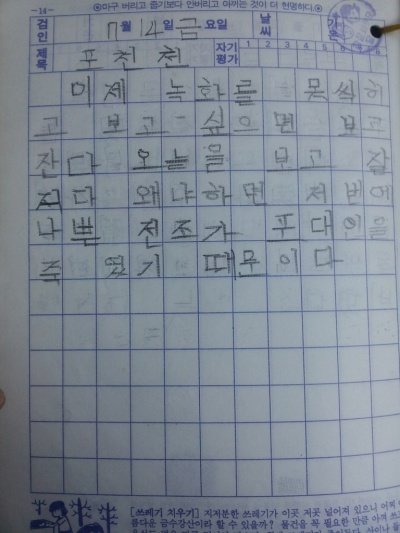 -14- ◎마구 버리고 줍기보다 안버리고 아끼는 것이 더 현명하다.◎
검인 7월 14일 금요일 날씨
제목 포천천 자기평가 1 2 3 4 5 6 7 8
미제 녹화를 못씩히
고 보고 싶으면 보고
잔다 오늘을 보고 잘
적다 왜냐하면 저번에
나쁜 전조가 푸대인을
죽 였기 때문이다
[쓰레기 치우기] 지저분한 쓰레기가 이곳 저곳 널어져 있으니 어찌
름다운 금수강산이라 할 수 있을까? 물건을 꼭 필요한 만큼 아껴 쓰